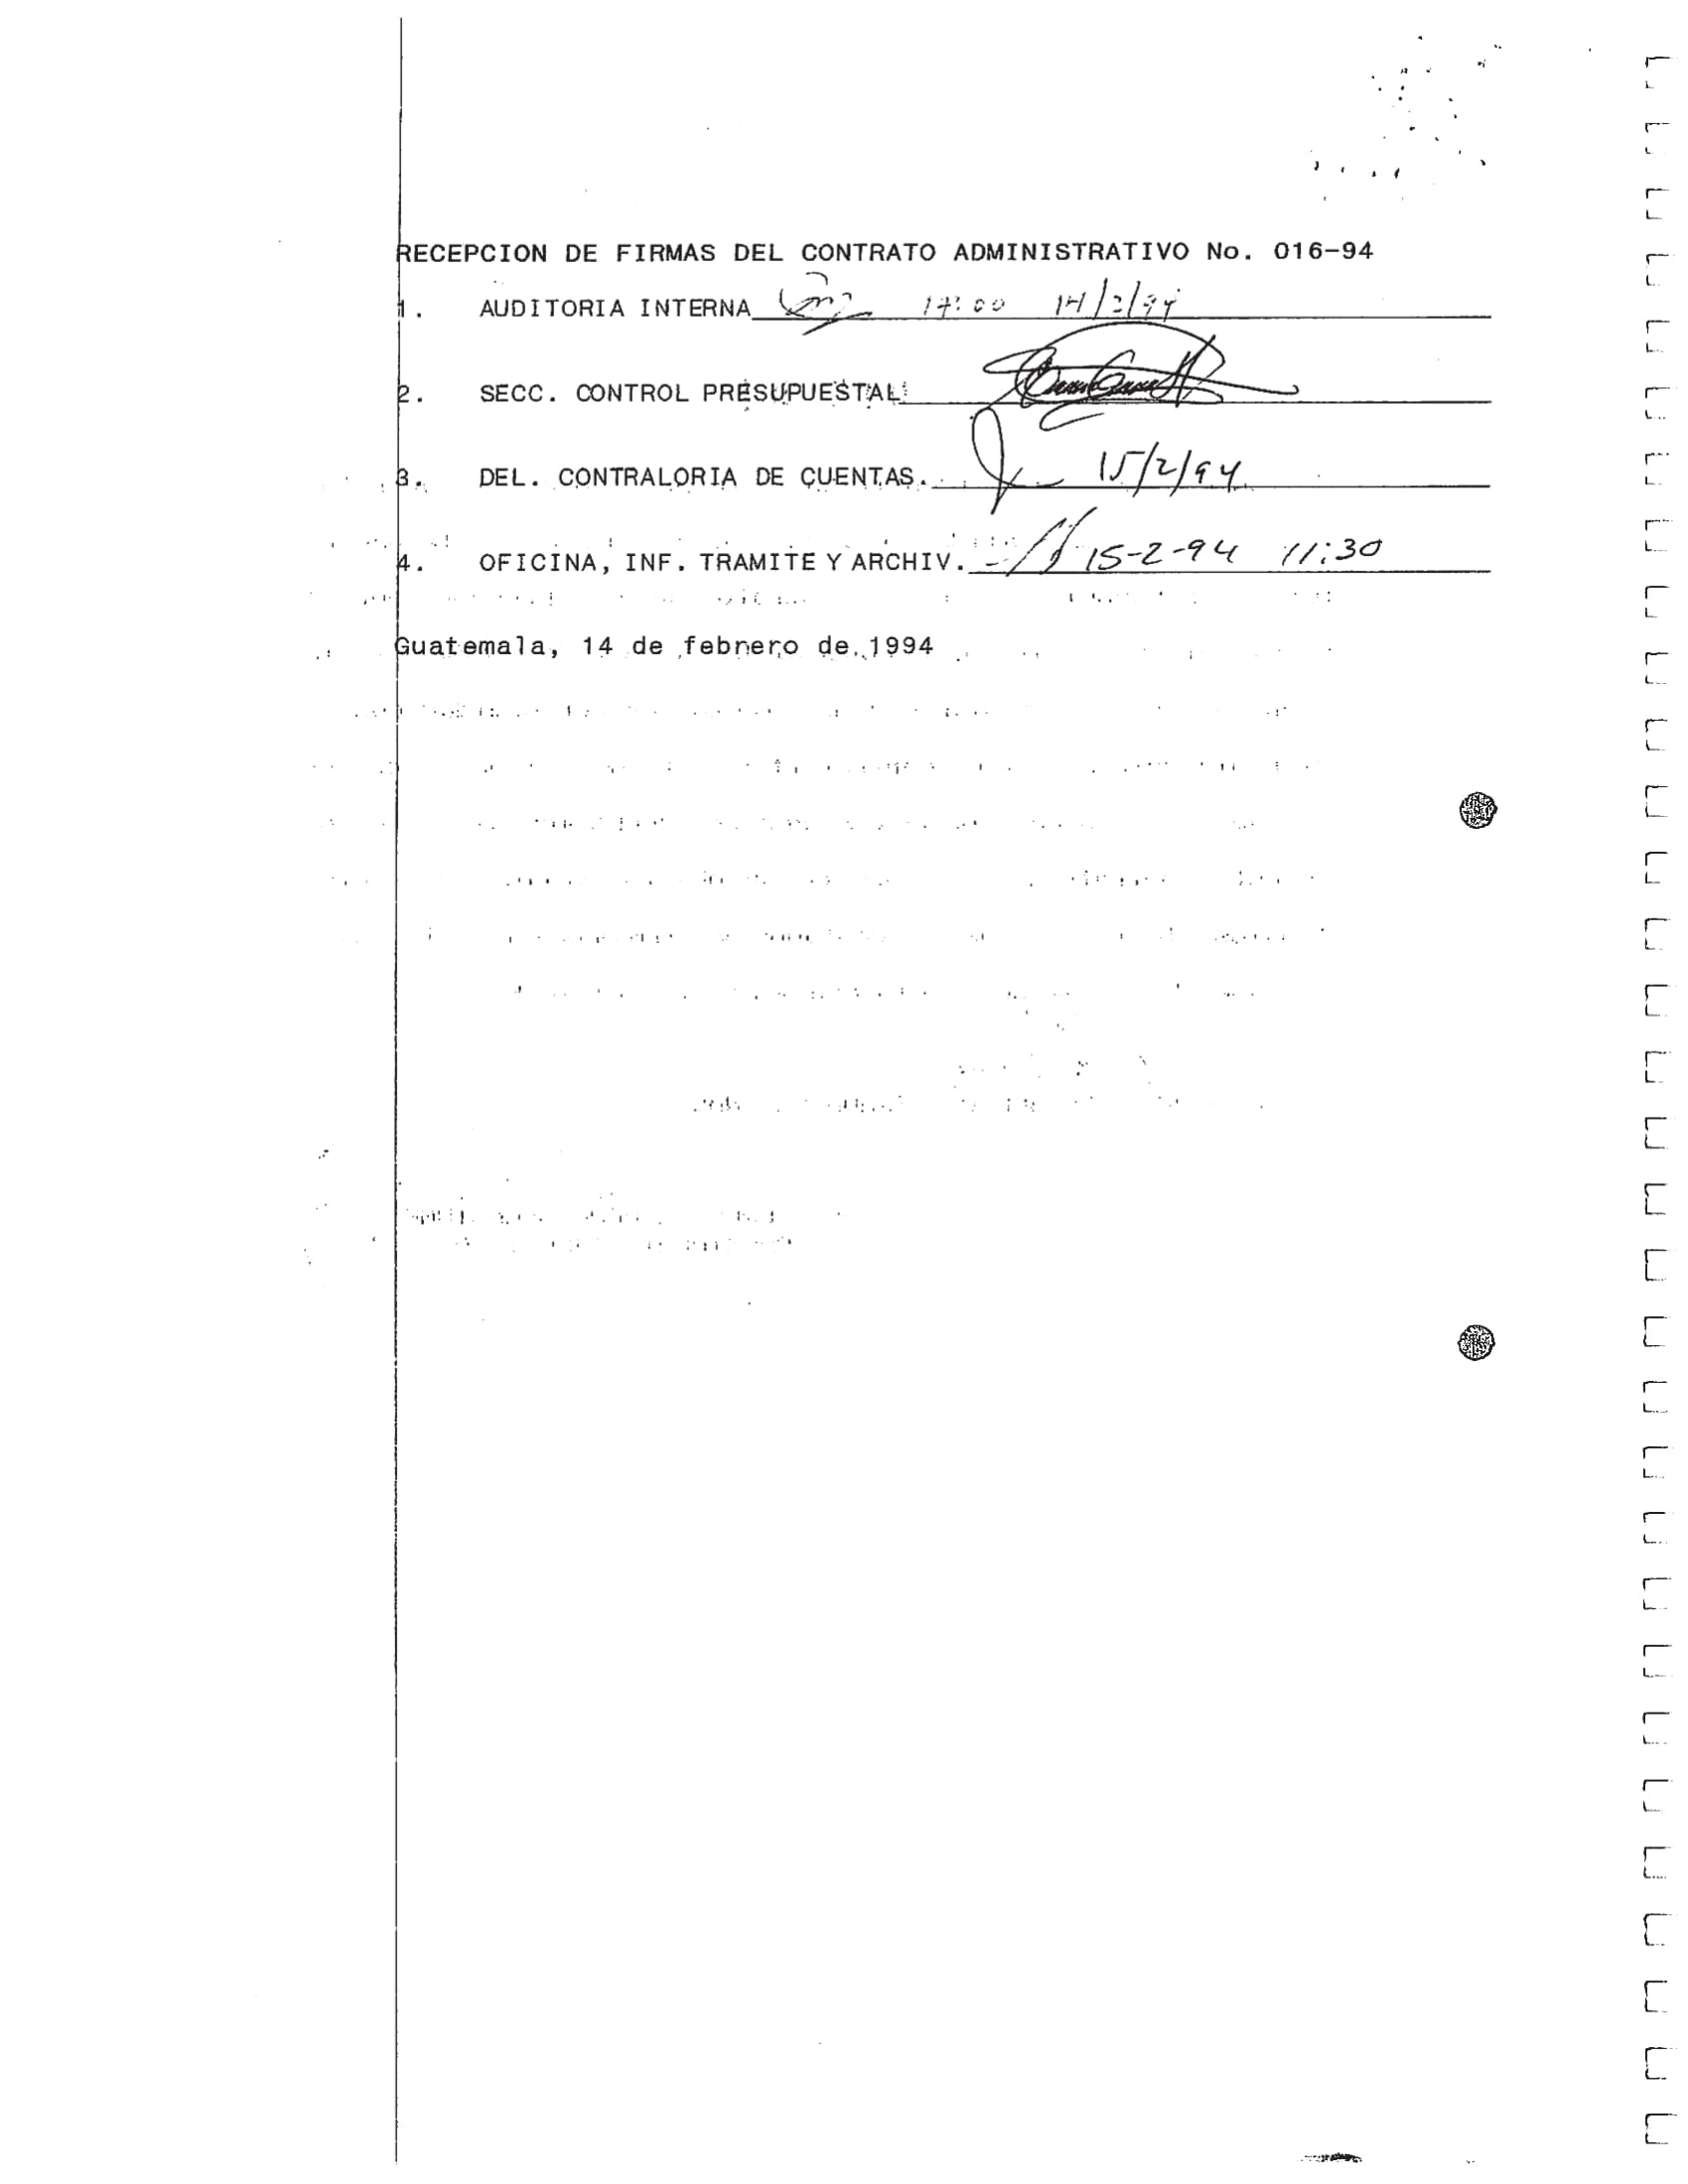 RECEPCION DE FIRMAS DEL CONTRATO ADMINISTRATIVO No. 016-94
1. AUDITORIA INTERNA 17:00 14/2/94
2. SECC. CONTROL PRESUPUESTAL
3. DEL. CONTRALORIA DE CUENTAS. 15/2/94
4. OFICINA, INF. TRAMITE Y ARCHIV. 15-2-94 11:30
Guatemala, 14 de febrero de 1994